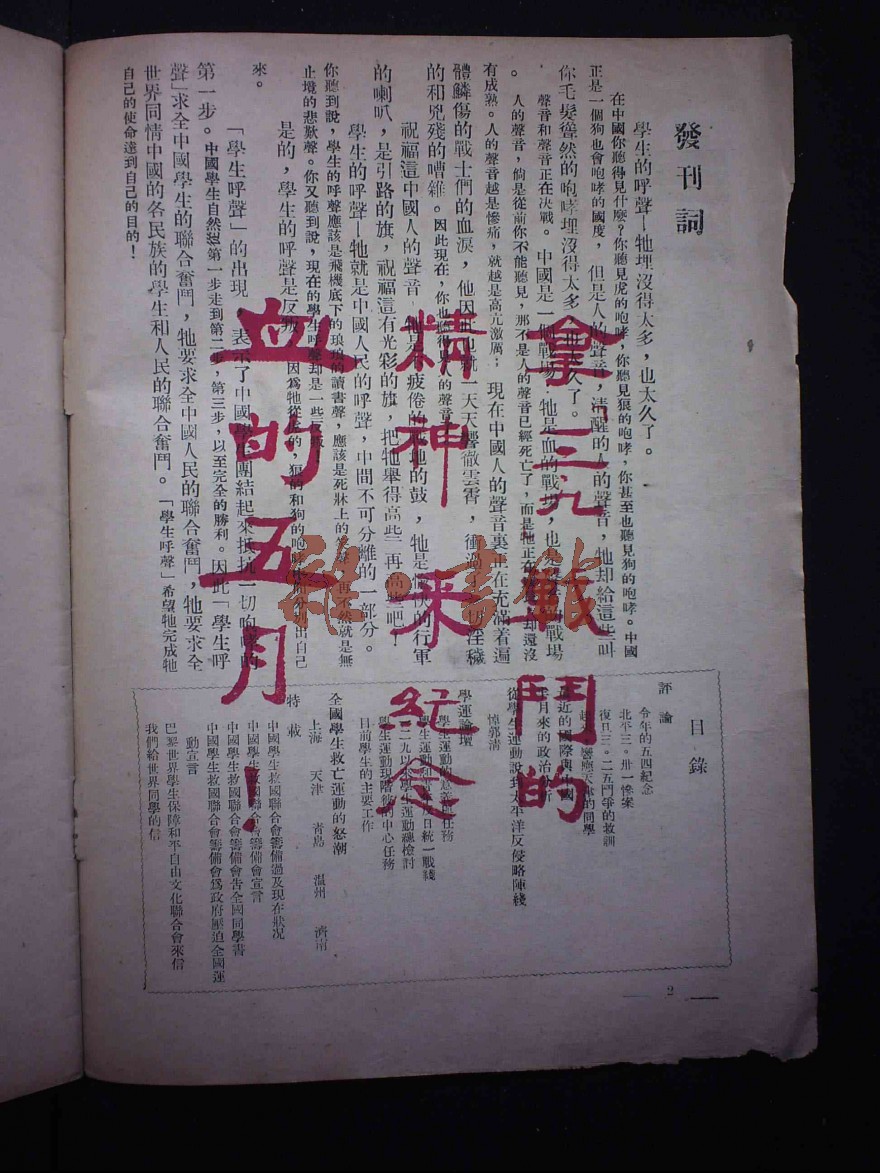 發刊詞
學生的呼聲—牠埋沒得太多，也太久了。
在中國你聽得見什麼？你聽見虎的咆哮，你聽見狼的咆哮，你甚至也聽見狗的咆哮。中國
正是一個狗也會咆哮的國度，但是人的聲音，清醒的人的聲音，牠却給這些叫
你毛髮聳然的咆哮埋沒得太多，也太久了。
聲音和聲音正在決戰。中國是一個戰場，牠是血的戰場，也是聲音的戰場
。人的聲音，倘是從前你不能聽見，那不是人的聲音已經死亡了，而是牠正在
有成熟。人的聲音越是慘痛，就越是高亢激厲；現在中國人的聲音裏正在充滿着遍
體鱗傷的戰士們的血淚，他因
一天天響徹雲霄，衝過
切淫穢
的和兇殘的嘈雜。因此現在，你也
的聲音
祝福這中國人的聲音，牠是疲倦的
地的鼓，牠是
快的行軍
的喇叭，是引路的旗，祝福這有光彩的旗，把牠舉得高些，再高些吧！
學生的呼聲—牠就是中國人民的呼聲，中間不可分離的一部分。
你聽到說，學生的呼聲應該是飛機底下的琅琅的讀書聲，應該是死牀上的
再不然就是無
止境的悲歎聲。你又聽到說，現在的學生呼聲却是一些
是的，學生的呼聲是反叛，因爲牠從虎的，狼的和狗的咆哮
分別出自己
來。
「學生呼聲」的出現，表示了中國學生團結起來抵抗一切咆哮的
第一步。中國學生自然從第一步走到第二步，第三步，以至完全的勝利。因此「學生呼
聲」求全中國學生的聯合奮鬥，牠要求全中國人民的聯合奮鬥，牠要求全
世界同情中國的各民族的學生和人民的聯合奮鬥。「學生呼聲」希望牠完成牠
自己的使命達到自己的目的！
拿一二九戰鬥的
精神来紀念
血的五月！
雜·書館
目錄
評論
今年的五四紀念
北平三·卅一慘案
復旦三·二五鬥爭的教訓
響應天津的同學
最近的國際與中國
月來的政治
從學生運動說到太平洋反侵略陣綫
悼郭清
學運論壇
學生運動的意義與任務
學生運動
抗日統一戰綫
一二九以來學生運動總檢討
學生運動現階段的中心任務
目前學生的主要工作
全國學生救亡運動的怒潮
上海　天津　青島　溫州　濟南
特載
中國學生救國聯合會籌備過及現在狀况
中國學生救國聯合會籌備會宣言
中國學生救國聯合會籌備會告全國同學書
中國學生救國聯合會籌備會爲政府壓迫全國運
動宣言
巴黎世界學生保障和平自由文化聯合會來信
我們給世界同學的信
2